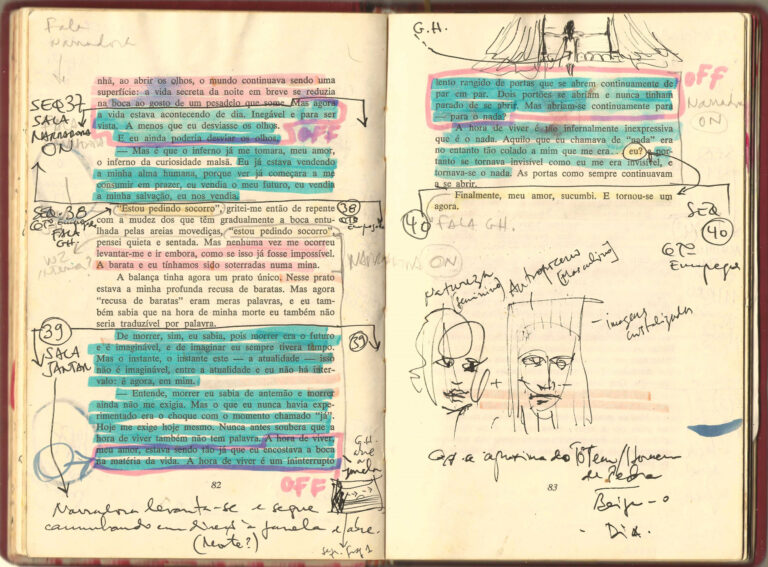 Fala
Narradora
SEQ 37
SALA
NARRADORA
ON
nhã, ao abrir os olhos, o mundo continuava sendo uma
superfície: a vida secreta da noite em breve se reduzia
na boca ao gosto de um pesadelo que some. Mas agora
a vida estava acontecendo de dia. Inegável e para ser
vista. A menos que eu desviasse os olhos.
OFF
E eu ainda poderia desviar os olhos.
— Mas é que o inferno já me tomara, meu amor,
o inferno da curiosidade malsã. Eu já estava vendendo
a minha alma humana, porque ver já começara a me
consumir em prazer, eu vendia o meu futuro, eu vendia
a minha salvação, eu nos vendia.
SEQ. 38
FALA
GH.
38
"Estou pedindo socorro", gritei-me então de repente
com a mudez dos que têm gradualmente a boca entu-
lhada pelas areias movediças, "estou pedindo socorro",
pensei quieta e sentada. Mas nenhuma vez me ocorreu
levantar-me e ir embora, como se isso já fosse impossível.
A barata e eu tínhamos sido soterradas numa mina.
NARRADORA ON
A balança tinha agora um prato único. Nesse prato
estava a minha profunda recusa de baratas. Mas agora
"recusa de baratas" eram meras palavras, e eu tam-
bém sabia que na hora de minha morte eu também não
seria traduzível por palavra.
39
SALA
JANTAR
39
De morrer, sim, eu sabia, pois morrer era o futuro
e é imaginável, e de imaginar eu sempre tivera tempo.
Mas o instante, o instante este — a atualidade — isso
não é imaginável, entre a atualidade e eu não há inter-
valo: é agora, em mim.
— Entende, morrer eu sabia de antemão e morrer
ainda não me exigia. Mas o que eu nunca havia expe-
rimentado era o choque com o momento chamado "já".
Hoje me exige hoje mesmo. Nunca antes soubera que a
hora de viver também não tem palavra. A hora de viver,
meu amor, estava sendo tão já que eu encostava a boca
na matéria da vida. A hora de viver é um ininterrupto
G.H.
abre
a
janela
OFF
82
Narradora levanta-se e segue
caminhando em direção à janela e abre.
(Noite?)
G.H.
lento rangido de portas que se abrem continuamente de
par em par. Dois portões se abriam e nunca tinham
parado de se abrir. Mas abriam-se continuamente para
— para o nada?
OFF
Narradora
ON
A hora de viver é tão infernalmente inexpressiva
que é o nada. Aquilo que eu chamava de "nada" era
no entanto tão colado a mim que me era... eu? e por-
tanto se tornava invisível como eu me era invisível, e
tornava-se o nada. As portas como sempre continuavam
a se abrir.
Finalmente, meu amor, sucumbi. E tornou-se um
agora.
40
FALA GH.
SEQ.
40
Natureza
[feminino]
Antropoceno
[masculino]
- imagens
cristalizadas
+
GH se aproxima do Totem/Homem
de Pedra
Beija-o
- Dia.
83